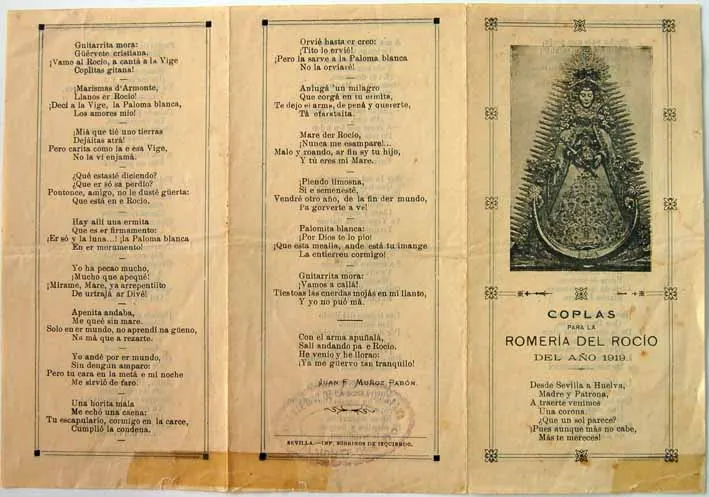 Guitarrita mora:
Güérvete cristiana.
¡Vamo al Rocío, a cantá a la Vige
Coplitas gitana!
¡Marismas d'Armonte,
Llanos er Rocío!
¡Decí a la Vige, la Paloma blanca,
Los amores mío!
¡Miá que tié uno tierras
Dejáitas atrá!
Pero carita como la e esa Vige,
No la vi enjamá.
¿Qué estasté diciendo?
¿Que er só sa perdío?
Pontonce, amigo, no le dusté güerta:
Que está en e Rocío.
Hay allí una ermita
Que es er firmamento:
¡Er só y la luna...! ¡la Paloma blanca
En er morumento!
Yo ha pecao mucho,
¡Mucho que apequé!
¡Mírame, Mare, ya arrepentiito
De urtrajá ar Divé!
Apenita andaba,
Me queé sin mare.
Solo en er mundo, no aprendí na güeno,
Na má que a rezarte.
Yo andé por er mundo,
Sin dengum amparo:
Pero tu cara en la metá e mi noche
Me sirvió de faro.
Una horita mala
Me echó una caena:
Tu escapulario, cormigo en la carce,
Cumplió la condena.
Orvié hasta er creo:
¡Tito lo orvié!
¡Pero la sarve a la Paloma blanca
No la orviaré!
Anlugá 'un milagro
Que corgá en tu ermita,
Te dejo el arma, de pená y quererte,
Tá efaratáita.
Mare der Rocío,
¡Nunca me esampare!...
Malo y roando, ar fin sy tu hijo,
Y tú eres mi Mare.
¡Piendo limosna,
Si e semenesté,
Vendré otro año, de la fin der mundo,
Pa gorverte a vé!
Palomita blanca:
¡Por Dios te lo pío!
¡Que esta mealla, ande está tu imange
La entierren cormigo!
Guitarrita mora:
¡Vamos a callá!
Ties toas las cuerdas mojás en mi llanto,
Y yo no pué má.
Con el arma apuñalá,
Salí andando pa e Rocío.
He venío y he llorao:
¡Ya me güervo tan tranquilo!
JUAN F. MUÑOZ PABÓN.
SEVILLA.—IMP. SOBRINOS DE IZQUIERDO.
COPLAS
PARA LA
ROMERÍA DEL ROCÍO
DEL AÑO 1919.
Desde Sevilla a Huelva,
Madre y Patrona,
A traerte venimos
Una corona.
¿Que un sol parece?
¡Pues aunque más no cabe,
Más te mereces!